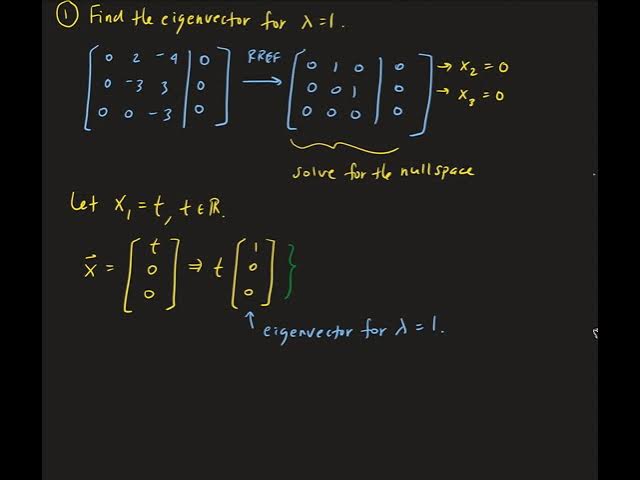 ① Find the eigenvector for λ=1.
[ 0 2 -4 | 0 ] RREF → [ 0 1 0 | 0 ] → x₂ = 0
[ 0 -3 3 | 0 ] [ 0 0 1 | 0 ] → x₃ = 0
[ 0 0 -3 | 0 ] [ 0 0 0 | 0 ]
solve for the nullspace
Let x₁ = t, t ∈ ℝ.
x⃗ = [ t 0 0 ] ⇒ t [ 1 0 0 ] }
↑ eigenvector for λ = 1.